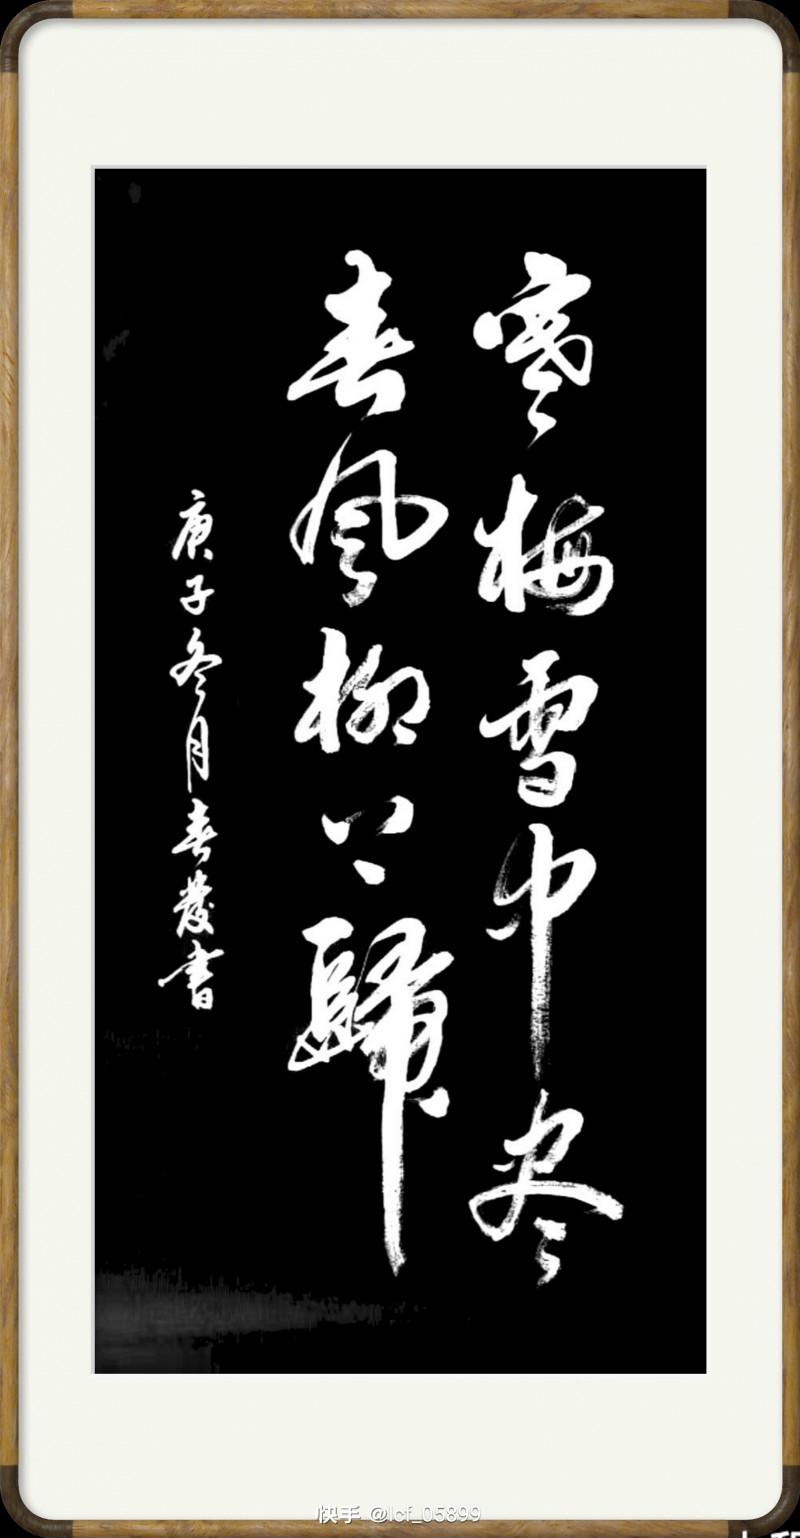 寒梅雪中尽
春风柳上歸
庚子冬月春發书
快手 @lcf_05899